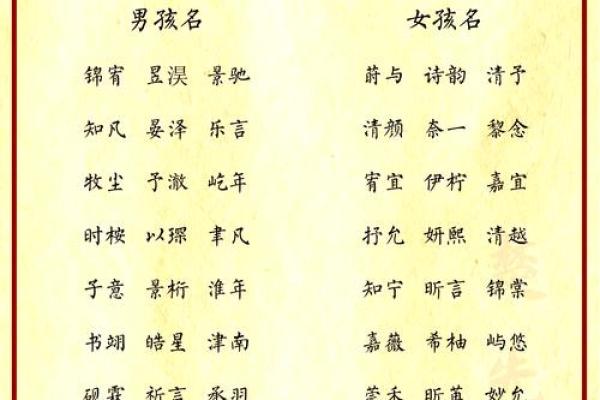 男孩名 女孩名
锦宥 昱淏 景驰 莳与 诗韵 清予
知凡 晏泽 乐言 清颜 奈一 黎念
牧尘 予澈 屹年 宥宜 伊柠 嘉宜
时桉 以琛 聿凡 抒允 妍熙 清越
子意 景桁 淮年 知宁 昕言 锦棠
书翊 皓星 津南 嘉薇 希柚 屿悠
砚霖 祈言 丞羽 昕苒 妙允